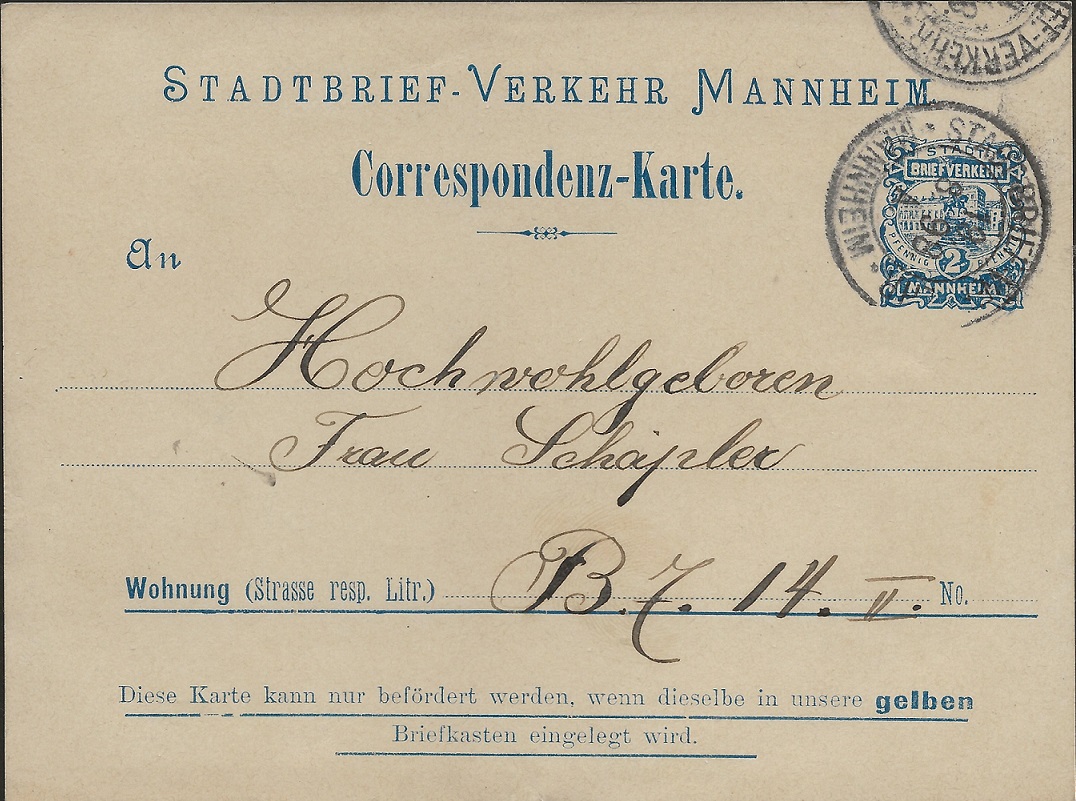 STADTBRIEF-VERKEHR MANNHEIM.
Correspondenz-Karte.
STADT-
BRIEFVERKEHR
PFENNIG 2 PFENNIG
MANNHEIM
An
Hochwohlgeboren
Frau Schäpler
Wohnung (Strasse resp. Litr.) B. 7. 14. II. No.
Diese Karte kann nur befördert werden, wenn dieselbe in unsere gelben
Briefkasten eingelegt wird.